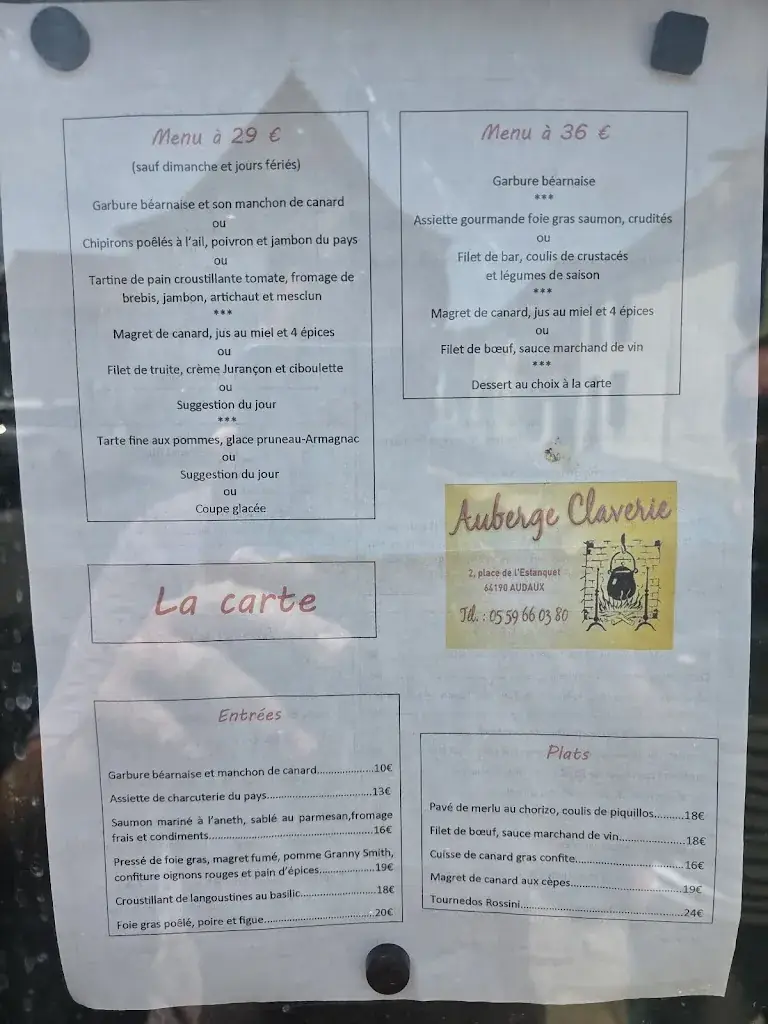 Menu à 29 €
(sauf dimanche et jours fériés)
Garbure béarnaise et son manchon de canard
ou
Chipirons poêlés à l'ail, poivron et jambon du pays
ou
Tartine de pain croustillante tomate, fromage de
brebis, jambon, artichaut et mesclun
***
Magret de canard, jus au miel et 4 épices
ou
Filet de truite, crème Jurançon et ciboulette
ou
Suggestion du jour
***
Tarte fine aux pommes, glace pruneau-Armagnac
ou
Suggestion du jour
ou
Coupe glacée
Menu à 36 €
Garbure béarnaise
***
Assiette gourmande foie gras saumon, crudités
ou
Filet de bar, coulis de crustacés
et légumes de saison
***
Magret de canard, jus au miel et 4 épices
ou
Filet de bœuf, sauce marchand de vin
***
Dessert au choix à la carte
Auberge Claverie
2, place de l'Estanquet
64190 AUDAUX
Tél. : 05 59 66 03 80
La carte
Entrées
Garbure béarnaise et manchon de canard....................10€
Assiette de charcuterie du pays.....................13€
Saumon mariné à l'aneth, sablé au parmesan,fromage
frais et condiments..................................16€
Pressé de foie gras, magret fumé, pomme Granny Smith,
confiture oignons rouges et pain d'épices..............19€
Croustillant de langoustines au basilic...............18€
Foie gras poêlé, poire et figue......................20€
Plats
Pavé de merlu au chorizo, coulis de piquillos.........18€
Filet de bœuf, sauce marchand de vin....................18€
Cuisse de canard gras confite.........................16€
Magret de canard aux cèpes.........................19€
Tournedos Rossini....................................24€